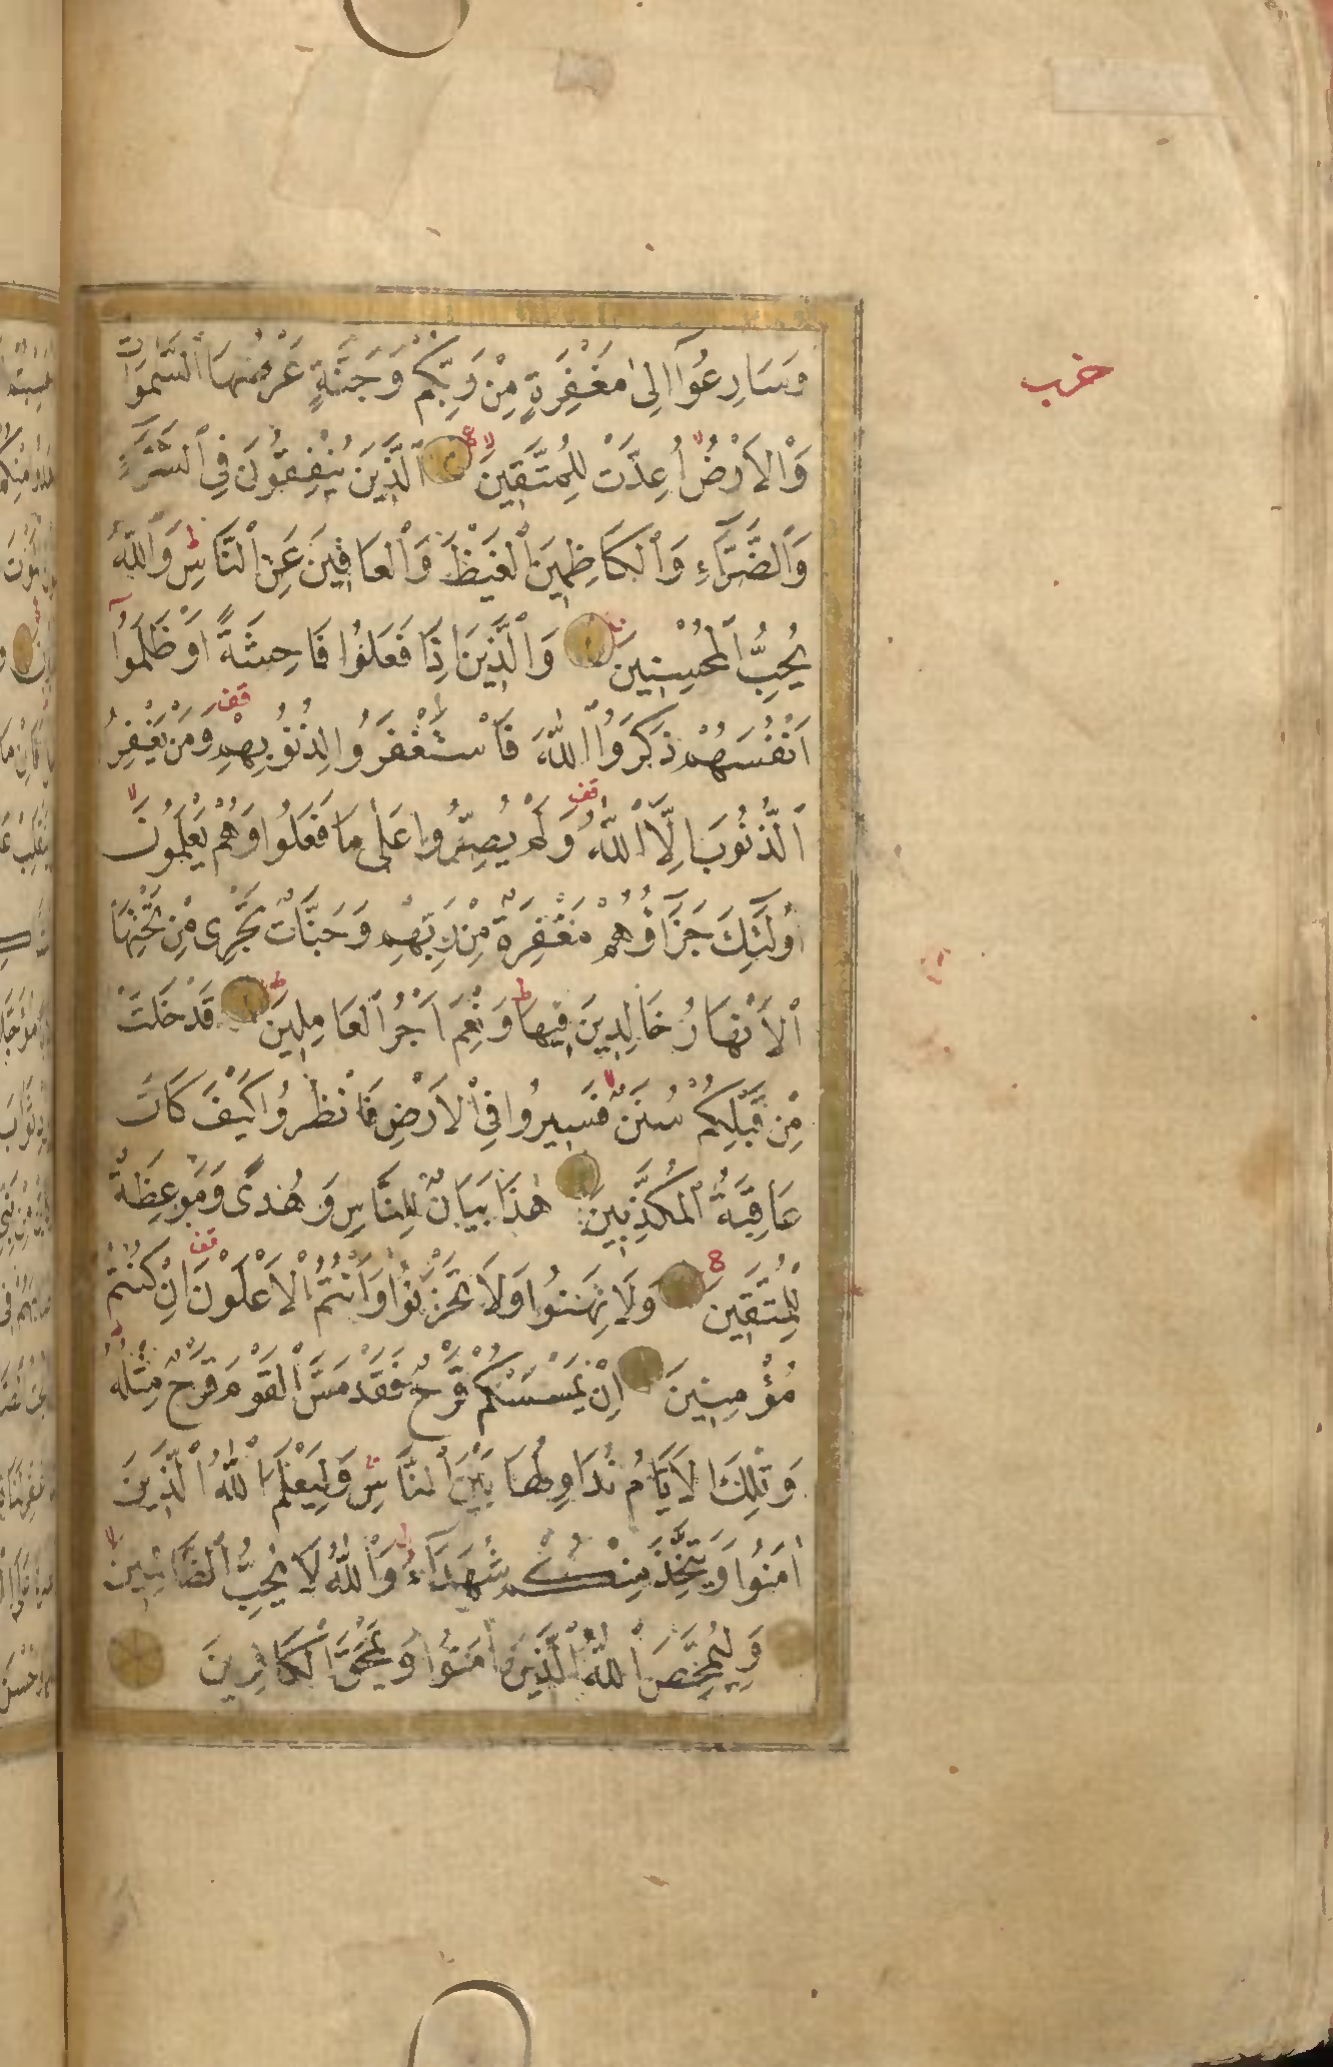 وَسَارِعُوٓا اِلٰى مَغْفِرَةٍ مِنْ رَبِّكُمْ وَجَنَّةٍ عَرْضُهَا ٱلسَّمٰوَاتُ
وَٱلْاَرْضُ اُعِدَّتْ لِلْمُتَّقِينَ ٱلَّذِينَ يُنْفِقُونَ فِى ٱلسَّرَّٓاءِ
وَٱلضَّرَّٓاءِ وَٱلْكَاظِمِينَ ٱلْغَيْظَ وَٱلْعَافِينَ عَنِ ٱلنَّاسِ ط وَٱللّٰهُ
يُحِبُّ ٱلْمُحْسِنِينَ وَٱلَّذِينَ اِذَا فَعَلُوا فَاحِشَةً اَوْ ظَلَمُوٓا
اَنْفُسَهُمْ ذَكَرُوا ٱللّٰهَ فَٱسْتَغْفَرُوا لِذُنُوبِهِمْ قف وَمَنْ يَغْفِرُ
ٱلذُّنُوبَ اِلَّا ٱللّٰهُ قف وَلَمْ يُصِرُّوا عَلٰى مَا فَعَلُوا وَهُمْ يَعْلَمُونَ لا
اُولٰٓئِكَ جَزَٓاؤُهُمْ مَغْفِرَةٌ مِنْ رَبِّهِمْ وَجَنَّاتٌ تَجْرِى مِنْ تَحْتِهَا
ٱلْاَنْهَارُ خَالِدِينَ فِيهَا ط وَنِعْمَ اَجْرُ ٱلْعَامِلِينَ ط قَدْ خَلَتْ
مِنْ قَبْلِكُمْ سُنَنٌ لا فَسِيرُوا فِى ٱلْاَرْضِ فَانْظُرُوا كَيْفَ كَانَ
عَاقِبَةُ ٱلْمُكَذِّبِينَ هٰذَا بَيَانٌ لِلنَّاسِ وَهُدًى وَمَوْعِظَةٌ
لِلْمُتَّقِينَ وَلَا تَهِنُوا وَلَا تَحْزَنُوا وَاَنْتُمُ ٱلْاَعْلَوْنَ قف اِنْ كُنْتُمْ
مُؤْمِنِينَ اِنْ يَمْسَسْكُمْ قَرْحٌ فَقَدْ مَسَّ ٱلْقَوْمَ قَرْحٌ مِثْلُهُ ط
وَتِلْكَ ٱلْاَيَّامُ نُدَاوِلُهَا بَيْنَ ٱلنَّاسِ وَلِيَعْلَمَ ٱللّٰهُ ٱلَّذِينَ
اٰمَنُوا وَيَتَّخِذَ مِنْكُمْ شُهَدَٓاءَ ط وَٱللّٰهُ لَا يُحِبُّ ٱلظَّالِمِينَ لا
وَلِيُمَحِّصَ ٱللّٰهُ ٱلَّذِينَ اٰمَنُوا وَيَمْحَقَ ٱلْكَافِرِينَ
حزب